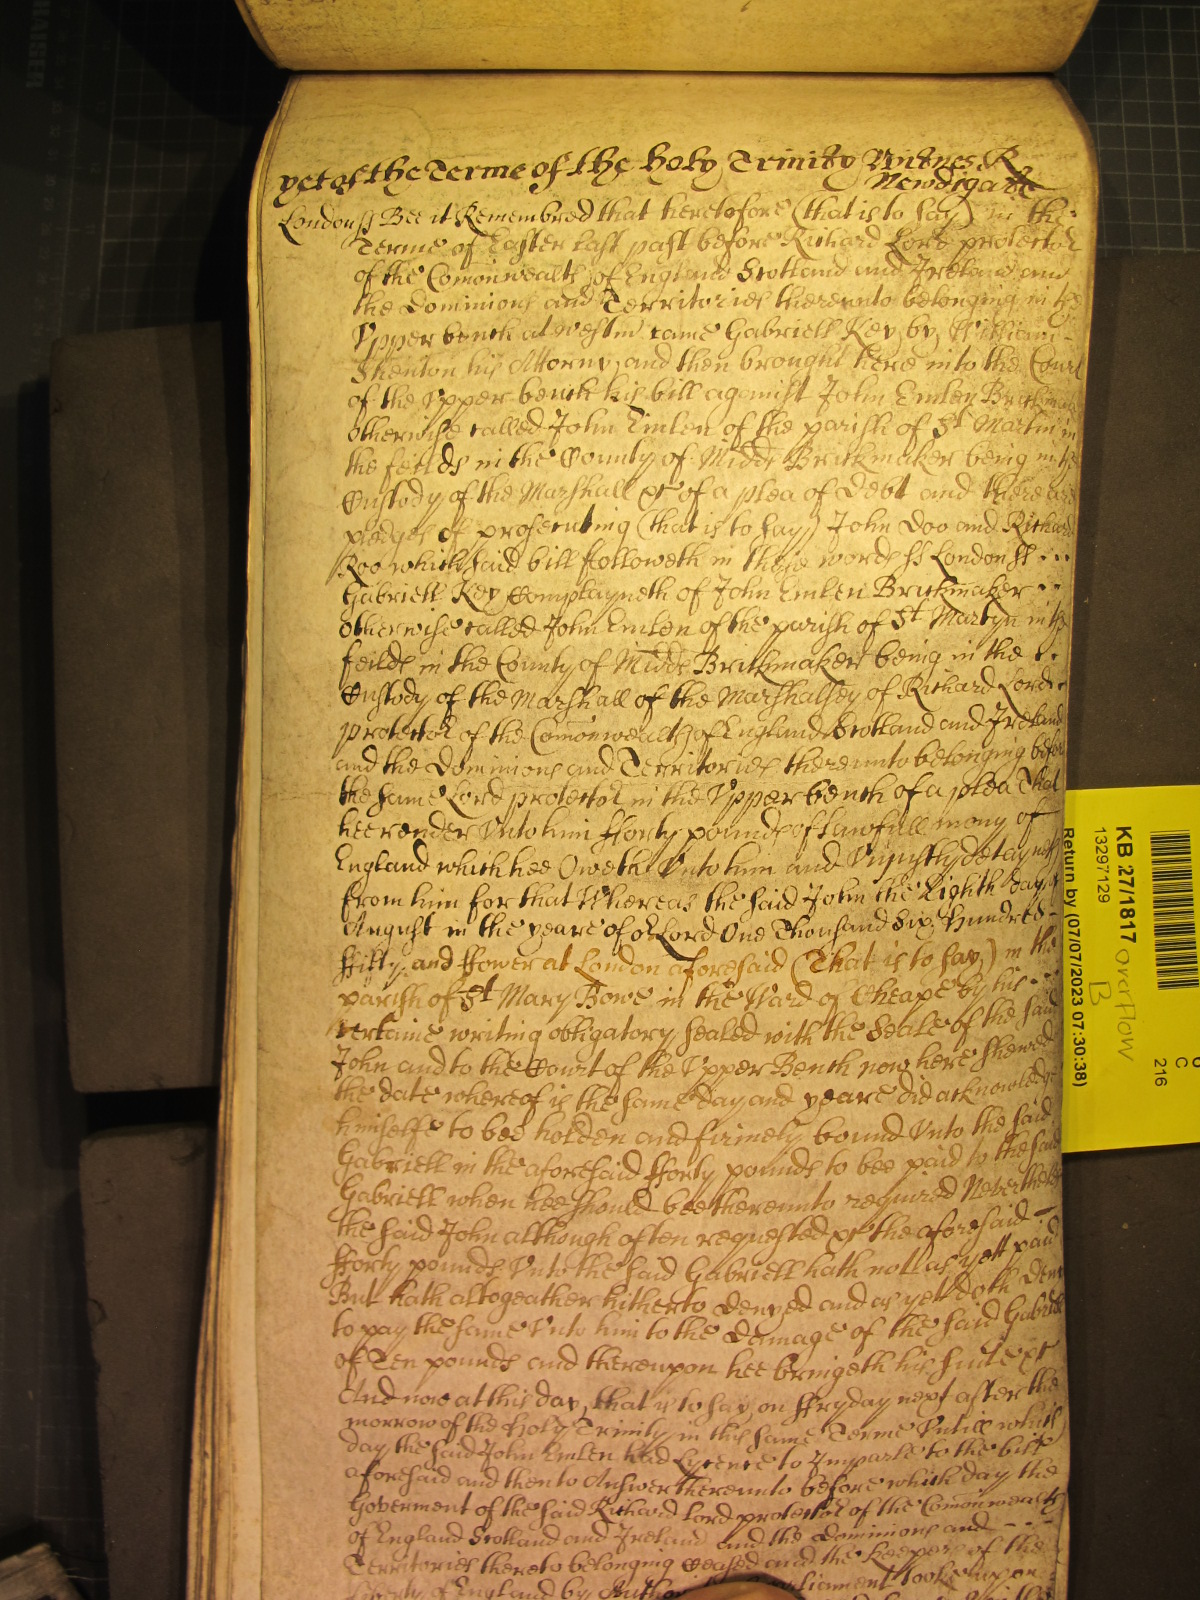 yet of the Terme of the Holy Trinity Witnes R
Newdigate
London ss Bee it Remembred that heretofore (that is to say) in the
Terme of Easter last past before Richard Lord protector
of the Comonwealth of England Scotland and Ireland and
the dominions and Territories thereunto belonging in the
Vpper bench at westm came Gabriell Key by William
Shenton his Attorny and then brought here into the Court
of the Vpper bench his bill against John Emlen Brickmaker
otherwise called John Emlen of the parish of St Martin in
the feilds in the County of Midds Brickmaker being in the
Custody of the Marshall &c of a plea of Debt and there are
pledges of prosecuting (that is to say) John Doo and Richard
Roo which said bill followeth in these words ss London ss
Gabriell Key Complayneth of John Emlen Brickmaker
otherwise called John Emlen of the parish of St Martyn in the
feilds in the County of Midds Brickmaker being in the
Custody of the Marshall of the Marshalsey of Richard Lord
protector of the Comonwealth of England Scotland and Ireland
and the Dominions and Territories thereunto belonging before
the same Lord protector in the Vpper bench of a plea That
hee render Vnto him fforty pounds of lawfull mony of
England which hee Oweth Vnto him and Vniustly detayneth
from him for that Whereas the said John the Eighth day of
August in the yeare of or Lord One Thousand Six Hundred
ffifty and ffower at London aforesaid (That is to say) in the
parish of St Mary Bowe in the Ward of Cheape by his
certaine writing obligatory sealed with the Seale of the said
John and to the Court of the Vpper Bench now here shewed
the date whereof is the same day and yeare did acknowledge
himselfe to bee holden and firmely bound Vnto the said
Gabriell in the aforesaid fforty pounds to bee paid to the said
Gabriell when hee should bee thereunto required Neverthelesse
the said John although often requested &c the aforesaid
fforty pounds Vnto the said Gabriell hath not as yett paid
But hath altogeather hitherto denyed and as yet doth deny
to pay the same Vnto him to the damage of the said Gabriell
of Ten pounds and thereupon hee bringeth his suite &c
And now at this day that is to say on ffryday next after the
morrow of the Holy Trinity in this same Terme Vntill which
day the said John Emlen had Lycence to Imparle to the bill
aforesaid and then to Answer thereunto before which day the
Goverment of the said Richard Lord protector of the Comonwealth
of England Scotland and Ireland and the dominions and
Territories thereto belonging ceased and the Keepers of the
Liberty of England by Parliament tooke upon
KB 27/1817 overflow
13297129 B
Return by (07/07/2023 07:30:38)
C
216